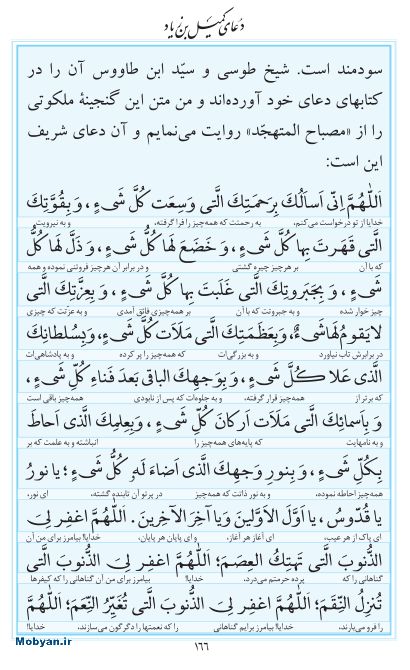 دعای کمیل بن زیاد
سودمند است. شیخ طوسی و سیّد ابن طاووس آن را در
کتابهای دعای خود آورده‌اند و من متن این گنجینهٔ ملکوتی
را از «مصباح المتهجّد» روایت می‌نمایم و آن دعای شریف
این است:
اَللّٰهُمَّ اِنّی اَسأَلُكَ بِرَحمَتِكَ الَّتی وَسِعَت كُلَّ شَیءٍ ، وَ بِقُوَّتِكَ
خدایا از تو درخواست می‌کنم، به رحمتت که همه‌چیز را فرا گرفته، و به نیرویت
الَّتی قَهَرتَ بِها كُلَّ شَیءٍ ، وَ خَضَعَ لَها كُلُّ شَیءٍ ، وَ ذَلَّ لَها كُلُّ
که با آن بر هرچیز چیره گشتی و در برابر آن هرچیز فروتنی نموده و همه
شَیءٍ ، وَ بِجَبَروتِكَ الَّتی غَلَبتَ بِها كُلَّ شَیءٍ ، وَ بِعِزَّتِكَ الَّتی
چیز خوار شده و به جبروتت که با آن بر همه‌چیزی فائق آمدی و به عزّتت که چیزی
لا یَقومُ لَها شَیءٌ ، وَ بِعَظَمَتِكَ الَّتی مَلَأَت كُلَّ شَیءٍ ، وَ بِسُلطانِكَ
در برابرش تاب نیاورد و به بزرگی‌ات که همه‌چیز را پر کرده و به پادشاهی‌ات
الَّذی عَلا كُلَّ شَیءٍ ، وَ بِوَجهِكَ الباقی بَعدَ فَناءِ كُلِّ شَیءٍ ،
که برتر از همه‌چیز قرار گرفته، و به جلوه‌ات که پس از نابودی همه‌چیز باقی است
وَ بِاَسمائِكَ الَّتی مَلَأَت اَركانَ كُلِّ شَیءٍ ، وَ بِعِلمِكَ الَّذی اَحاطَ
و به نامهایت که پایه‌های همه‌چیز را انباشته و به علمت که بر
بِكُلِّ شَیءٍ ، وَ بِنورِ وَجهِكَ الَّذی اَضاءَ لَهُ كُلُّ شَیءٍ ؛ یا نورُ
همه‌چیز احاطه نموده، و به نور ذاتت که همه‌چیز در پرتو آن تابنده گشته، ای نور،
یا قُدّوسُ ، یا اَوَّلَ الاَوَّلینَ وَ یا آخِرَ الآخِرینَ . اَللّٰهُمَّ اغفِر لِیَ
ای پاک از هر عیب، ای آغاز هر آغاز، و ای پایان هر پایان، خدایا! بیامرز برای من آن
الذُّنوبَ الَّتی تَهتِكُ العِصَمَ؛ اَللّٰهُمَّ اغفِر لِیَ الذُّنوبَ الَّتی
گناهانی را که پرده حرمتم می‌درد. خدایا! بیامرز برای من آن گناهانی را که کیفرها
تُنزِلُ النِّقَمَ؛ اَللّٰهُمَّ اغفِر لِیَ الذُّنوبَ الَّتی تُغَیِّرُ النِّعَمَ؛ اَللّٰهُمَّ
را فرو می‌بارند، خدایا! بیامرز برایم گناهانی را که نعمتها را دگرگون می‌سازند، خدایا!
Mobyan.ir
۱۶۶